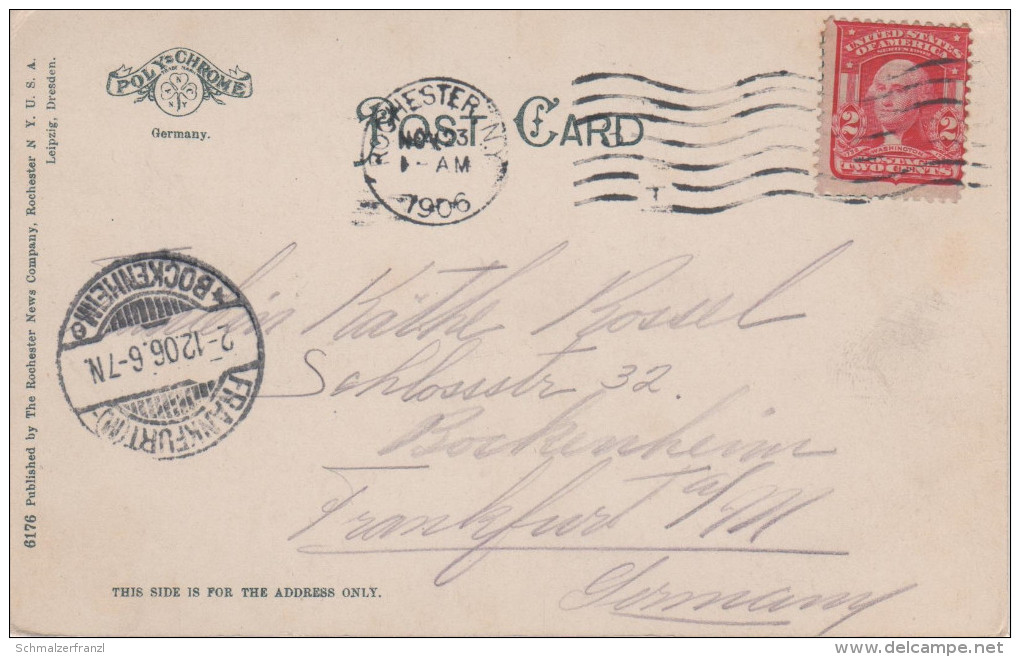 POLY-CHROME
Germany.
POST CARD
ROCHESTER, N.Y.
NOV 23
AM
1906
UNITED STATES
OF AMERICA
SERIES 1902
WASHINGTON
POSTAGE
2 2
TWO CENTS
6176 Published by The Rochester News Company, Rochester N Y. U. S. A.
Leipzig, Dresden.
BOCKENHEIM
2-12.06. 6-7N.
FRANKFURT (M)
Fräulein Käthe Rossel
Schlossstr 32
Bockenheim
Frankfurt a/M
Germany
THIS SIDE IS FOR THE ADDRESS ONLY.
Schmalzerfranzl